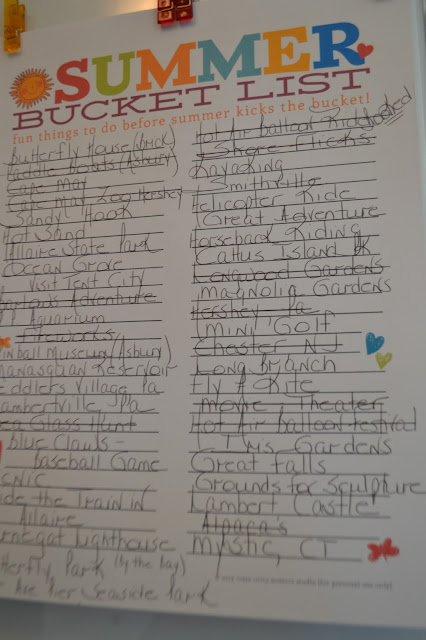 SUMMER
BUCKET LIST
fun things to do before summer kicks the bucket!
Butterfly House (Brick)
Paddle Boats (Asbury)
Cape May
Cape May Zoo Hershey
Sandy Hook
Hot Sand
Allaire State Park
Ocean Grove
Visit Tent City
Adventure
Aquarium
Fireworks
Pinball Museum (Asbury)
Manasquan Reservoir
Peddlers Village Pa
Lambertville, Pa
Sea Glass Hunt
blue Claws -
Baseball Game
Picnic
Ride the Train in
Allaire
Barnegat Lighthouse
Butterfly Park (by the bay)
Pier Seaside Park
Hot Air balloon Ride booked
Shore Flicks
Kayaking
Smithville
Helicopter Ride
Great Adventure
Horseback Riding
Cattus Island Pk
Longwood Gardens
Magnolia Gardens
Hershey Pa
Mini Golf
Chester NJ
Long Branch
Fly A Kite
Movie Theater
Hot Air balloon festival
Iris Gardens
Great Falls
Grounds for Sculpture
Lambert Castle
Alpaca's
Mystic, CT